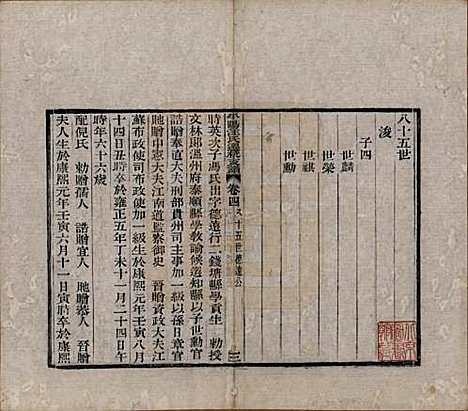 八十五世
浚
子四
世麟
世榮
世祺
世勳
卷四 八十五世德遠公
三
時英次子馮氏出字德遠行二錢塘縣學貢生 勅授
文林郎溫州府泰順縣學教諭候選知縣以子世勳官
誥贈奉直大夫刑部貴州司主事加一級以孫日章官
貤贈中憲大夫江南道監察御史 晉贈資政大夫江
蘇布政使司布政使加一級生於康熙元年壬寅八月
十四日丑時卒於雍正五年丁未十一月二十四日午
時年六十六歲
配倪氏 勅贈孺人 誥贈宜人 貤贈恭人 晉贈
夫人生於康熙元年壬寅六月十一日寅時卒於康熙